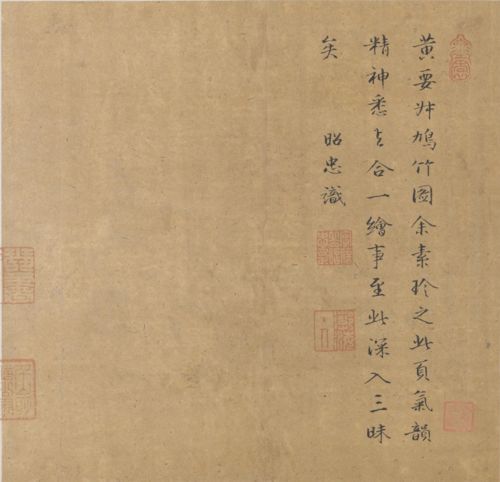 黃要叔鳩竹圖余素珍之此頁氣韻
精神悉合一繪事至此深入三昧
矣 昭忠識